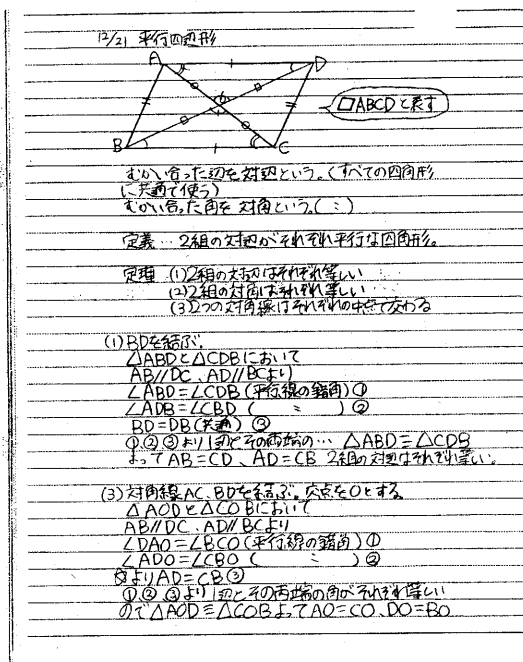 12/21 平行四辺形
A D
O
B C
□ABCDと表す
むかい合った辺を対辺という。(すべての四角形
に共通で使う)
むかい合った角を対角という。( 〃 )
定義…2組の対辺がそれぞれ平行な四角形。
定理 (1)2組の対辺はそれぞれ等しい
(2)2組の対角はそれぞれ等しい
(3)2つの対角線はそれぞれの中点で交わる
(1)BDを結ぶ。
△ABDと△CDBにおいて
AB//DC、AD//BCより
∠ABD=∠CDB(平行線の錯角)①
∠ADB=∠CBD ( 〃 ) ②
BD=DB(共通) ③
①,②,③より1辺とその両端の… △ABD≡△CDB
よってAB=CD、AD=CB 2組の対辺はそれぞれ等しい。
(3)対角線AC、BDを結ぶ。交点をOとする
△AODと△COBにおいて
AB//DC、AD//BCより
∠DAO=∠BCO(平行線の錯角)①
∠ADO=∠CBO ( 〃 ) ②
よりAD=CB③
①,②,③より1辺とその両端の角がそれぞれ等しい
ので△AOD≡△COBよってAO=CO、DO=BO